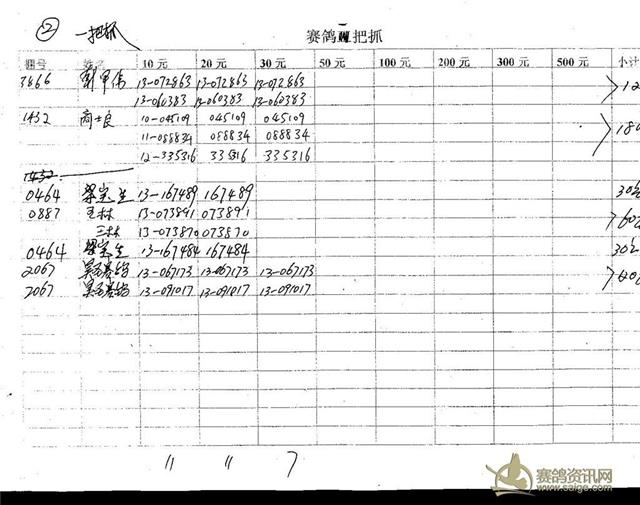 ② 一把抓
赛鸽 一把抓
棚号 姓名 10元 20元 30元 50元 100元 200元 300元 500元 小计
3866 13-072863 13-072863 13-072863
13-060383 13-060383 13-060383
1432 商士良 10-045109 045109 045109
11-088834 088834 088834
12-335316 335316 335316
1432
0464 梁宝生 13-167489 167489 30元
0887 王林 13-073891 073891
王林 13-073870 073870
0464 梁宝生 13-167484 167484 30元
2067 13-067173 13-067173 13-067173
2067 13-091017 13-091017 13-091017
11 11 7
赛鸽资讯网
www.saige.com